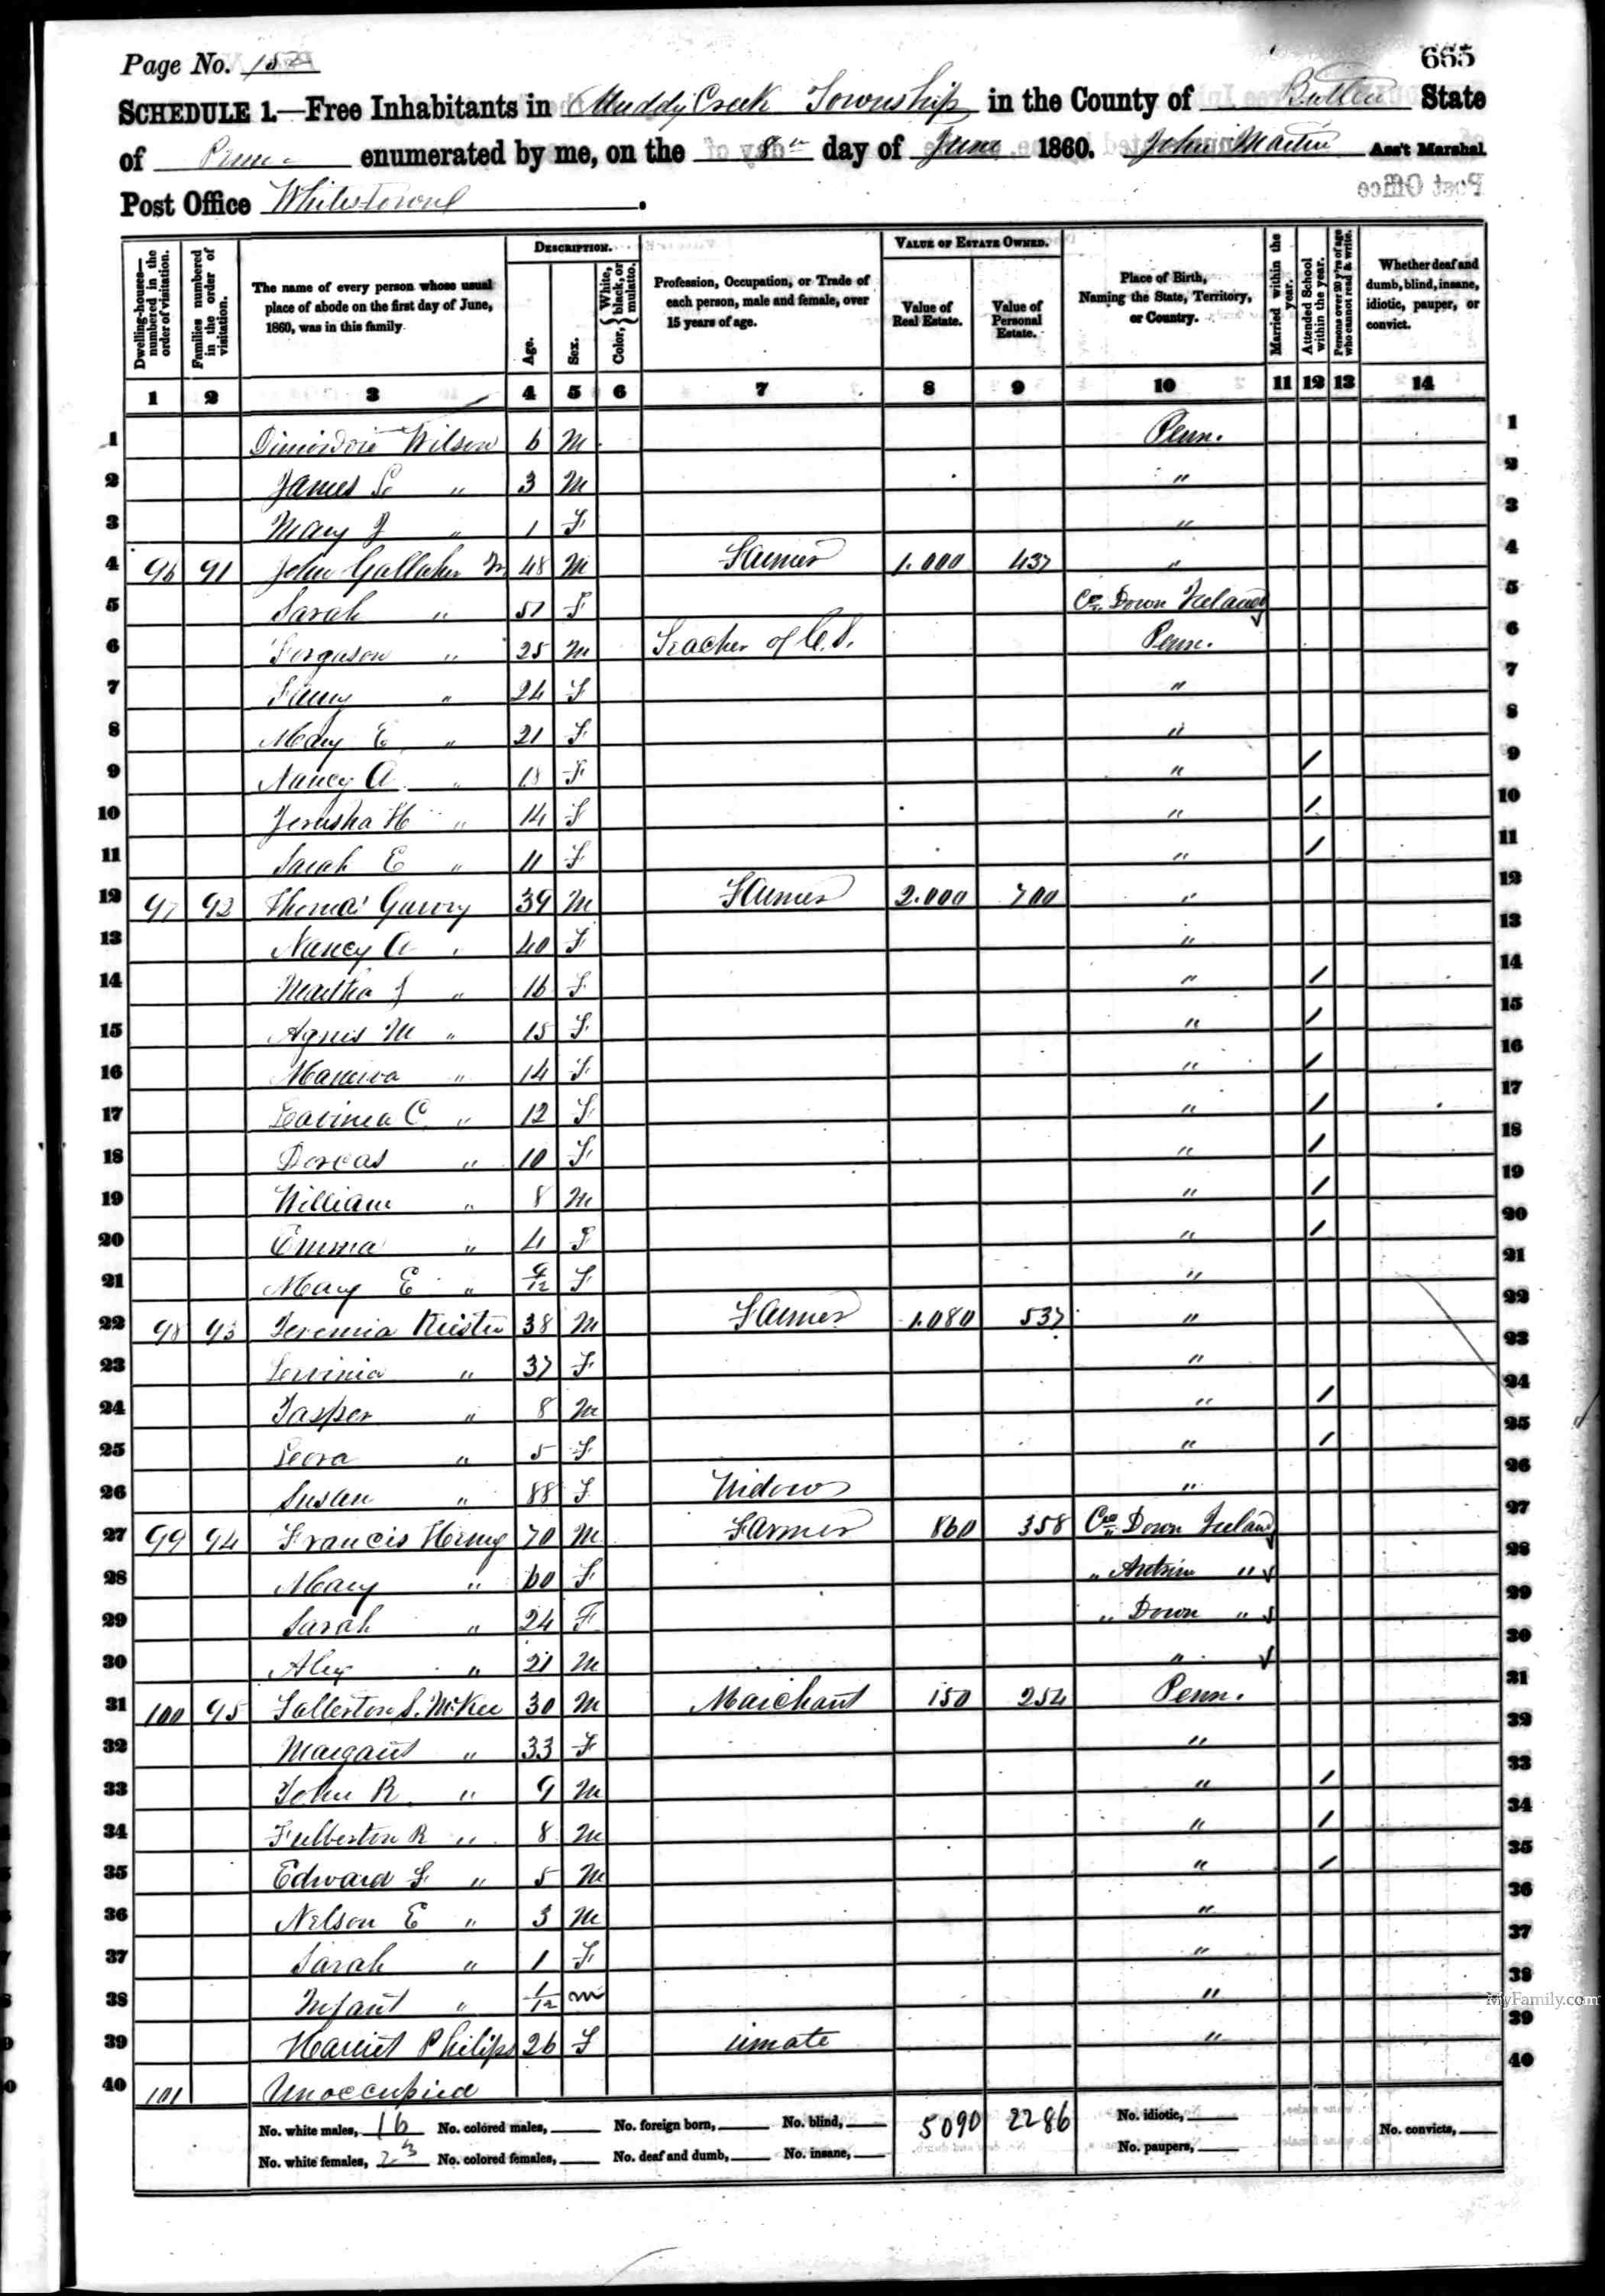 Page No. 152
665
SCHEDULE 1.—Free Inhabitants in Muddy Creek Township in the County of Butler State
of Penn enumerated by me, on the 8th day of June 1860. John Martin Ass't Marshal
Post Office Whitestown.
Post Office
Dwelling-houses—numbered in the order of visitation.
Families numbered in the order of visitation.
The name of every person whose usual place of abode on the first day of June, 1860, was in this family.
DESCRIPTION.
Age.
Sex.
Color, { White, black, or mulatto.
Profession, Occupation, or Trade of each person, male and female, over 15 years of age.
VALUE OF ESTATE OWNED.
Value of Real Estate.
Value of Personal Estate.
Place of Birth, Naming the State, Territory, or Country.
Married within the year.
Attended School within the year.
Persons over 20 y'rs of age who cannot read & write.
Whether deaf and dumb, blind, insane, idiotic, pauper, or convict.
1 2 3 4 5 6 7 8 9 10 11 12 13 14
1 Wilson 6 M Penn. 1
2 James S " 3 M " 2
3 Mary J " 1 F " 3
4 96 91 John Gallaher 48 M Farmer 1.000 437 " 4
5 Sarah " 51 F Co. Down Ireland 5
6 Ferguson " 25 M Teacher of C.S. Penn. 6
7 Fanny " 24 F " 7
8 Mary E " 21 F " 8
9 Nancy A " 18 F " / 9
10 Jerusha H " 14 F " / 10
11 Sarah E " 11 F " / 11
12 97 92 Thomas Garvy 39 M Farmer 2.000 700 " 12
13 Nancy A " 40 F " 13
14 Martha J " 16 F " / 14
15 Agnes M " 15 F " / 15
16 " 14 F " / 16
17 Lavinea C. " 12 F " / 17
18 Dorcas " 10 F " / 18
19 William " 8 M " / 19
20 Emma " 4 F " / 20
21 Mary E " 9/12 F " 21
22 98 93 Jeremia Kiester 38 M Farmer 1.080 537 " 22
23 Levinia " 37 F " 23
24 Jasper " 8 M " / 24
25 Leora " 5 F " / 25
26 Susan " 88 F Widow " 26
27 99 94 Francis Henry 70 M Farmer 860 358 Co. Down Ireland 27
28 Mary " 60 F " Antrim " 28
29 Sarah " 24 F " Down " 29
30 Alex " 21 M " 30
31 100 95 Fullerton S. McKee 30 M Marchant 150 254 Penn. 31
32 Margaret " 33 F " 32
33 John R. " 9 M " / 33
34 Fullerton R " 8 M " / 34
35 Edward F " 5 M " / 35
36 Nelson E " 3 M " 36
37 Sarah " 1 F " 37
38 Infant " 1/12 m " 38
39 Harriet Philips 26 F inmate " 39
40 101 Unoccupied 40
No. white males, 16 No. colored males, No. foreign born, No. blind, 5090 2286 No. idiotic,
No. white females, 23 No. colored females, No. deaf and dumb, No. insane, No. paupers, No. convicts,
MyFamily.com